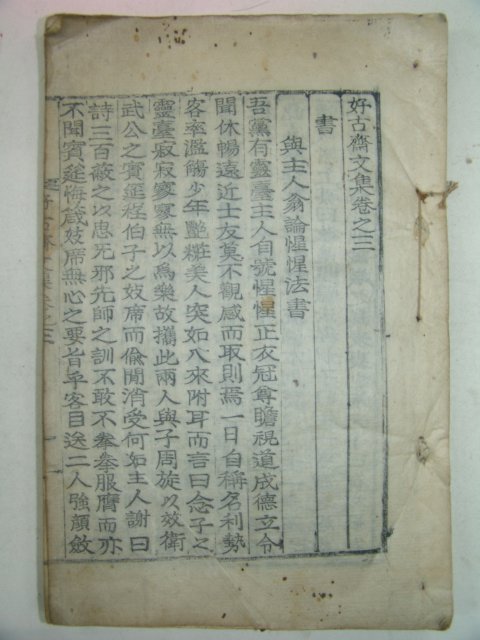 好古齋文集卷之三
書
與主人翁論惺惺法書
吾黨有靈臺主人自號惺惺正衣冠尊瞻視道成德立令
聞休暢遠近士友莫不觀感而取則焉一日自稱名利勢
客率濫觴少年艶粧美人突如入來附耳而言曰念子之
靈臺寂寂寥寥無以爲樂故携此兩人與子周旋以效衛
武公之賓筵程伯子之妓席而偸閒消受何如主人謝曰
詩三百蔽之以思无邪先師之訓不敢不拳拳服膺而亦
不聞賓筵悔箴妓席無心之要旨乎客目送二人強顔斂